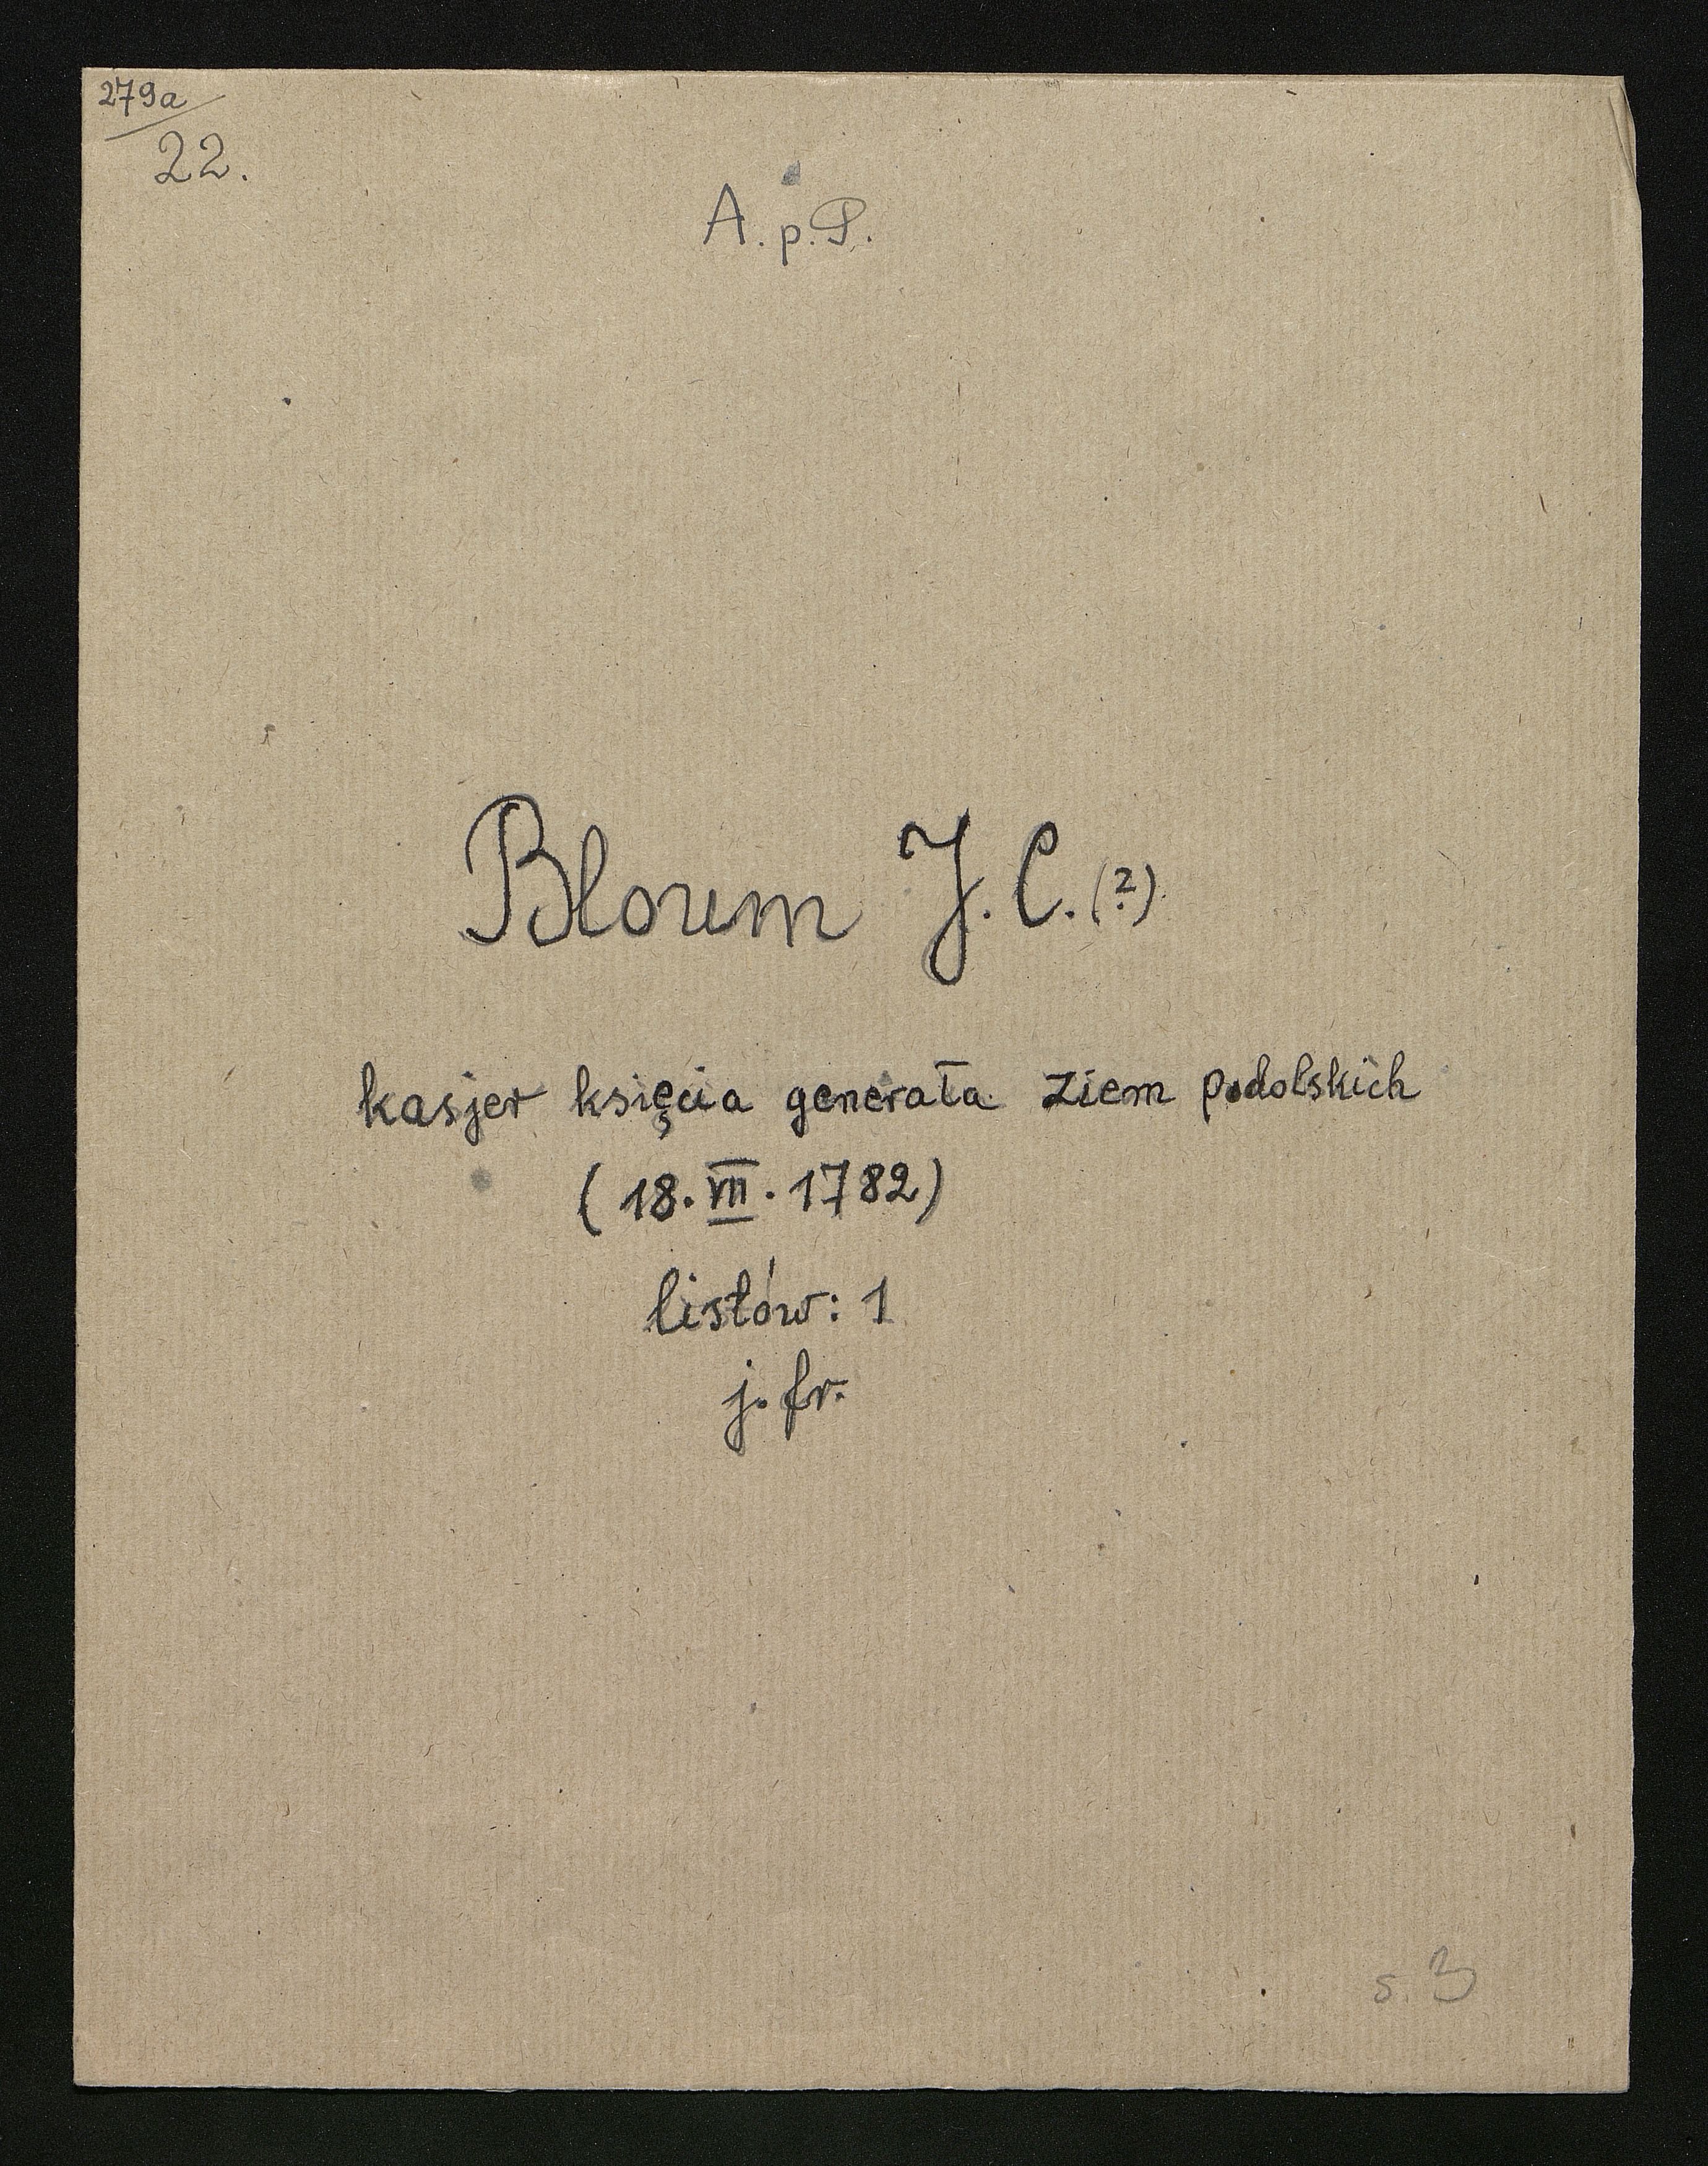 279a
22.
A.p.P.
Blorem J. C. (?)
kasjer księcia generała ziem podolskich
(18. VII. 1782)
listów: 1
j. fr.
s. 3